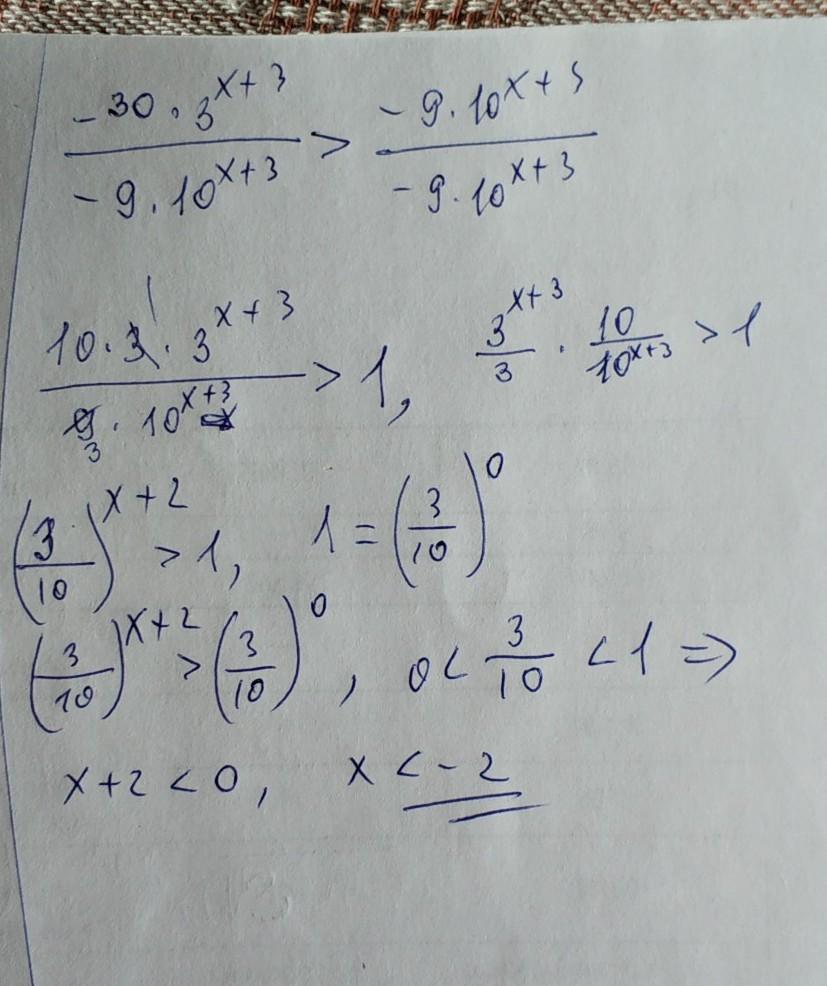 (-30 · 3^(x+3)) / (-9 · 10^(x+3)) > (-9 · 10^(x+3)) / (-9 · 10^(x+3))
(10 · 3 · 3^(x+3)) / (9 · 10^(x+3)) > 1, 3^(x+3)/3 · 10/10^(x+3) > 1
(3/10)^(x+2) > 1, 1 = (3/10)^0
(3/10)^(x+2) > (3/10)^0, 0 < 3/10 < 1 ⇒
x+2 < 0, x < -2